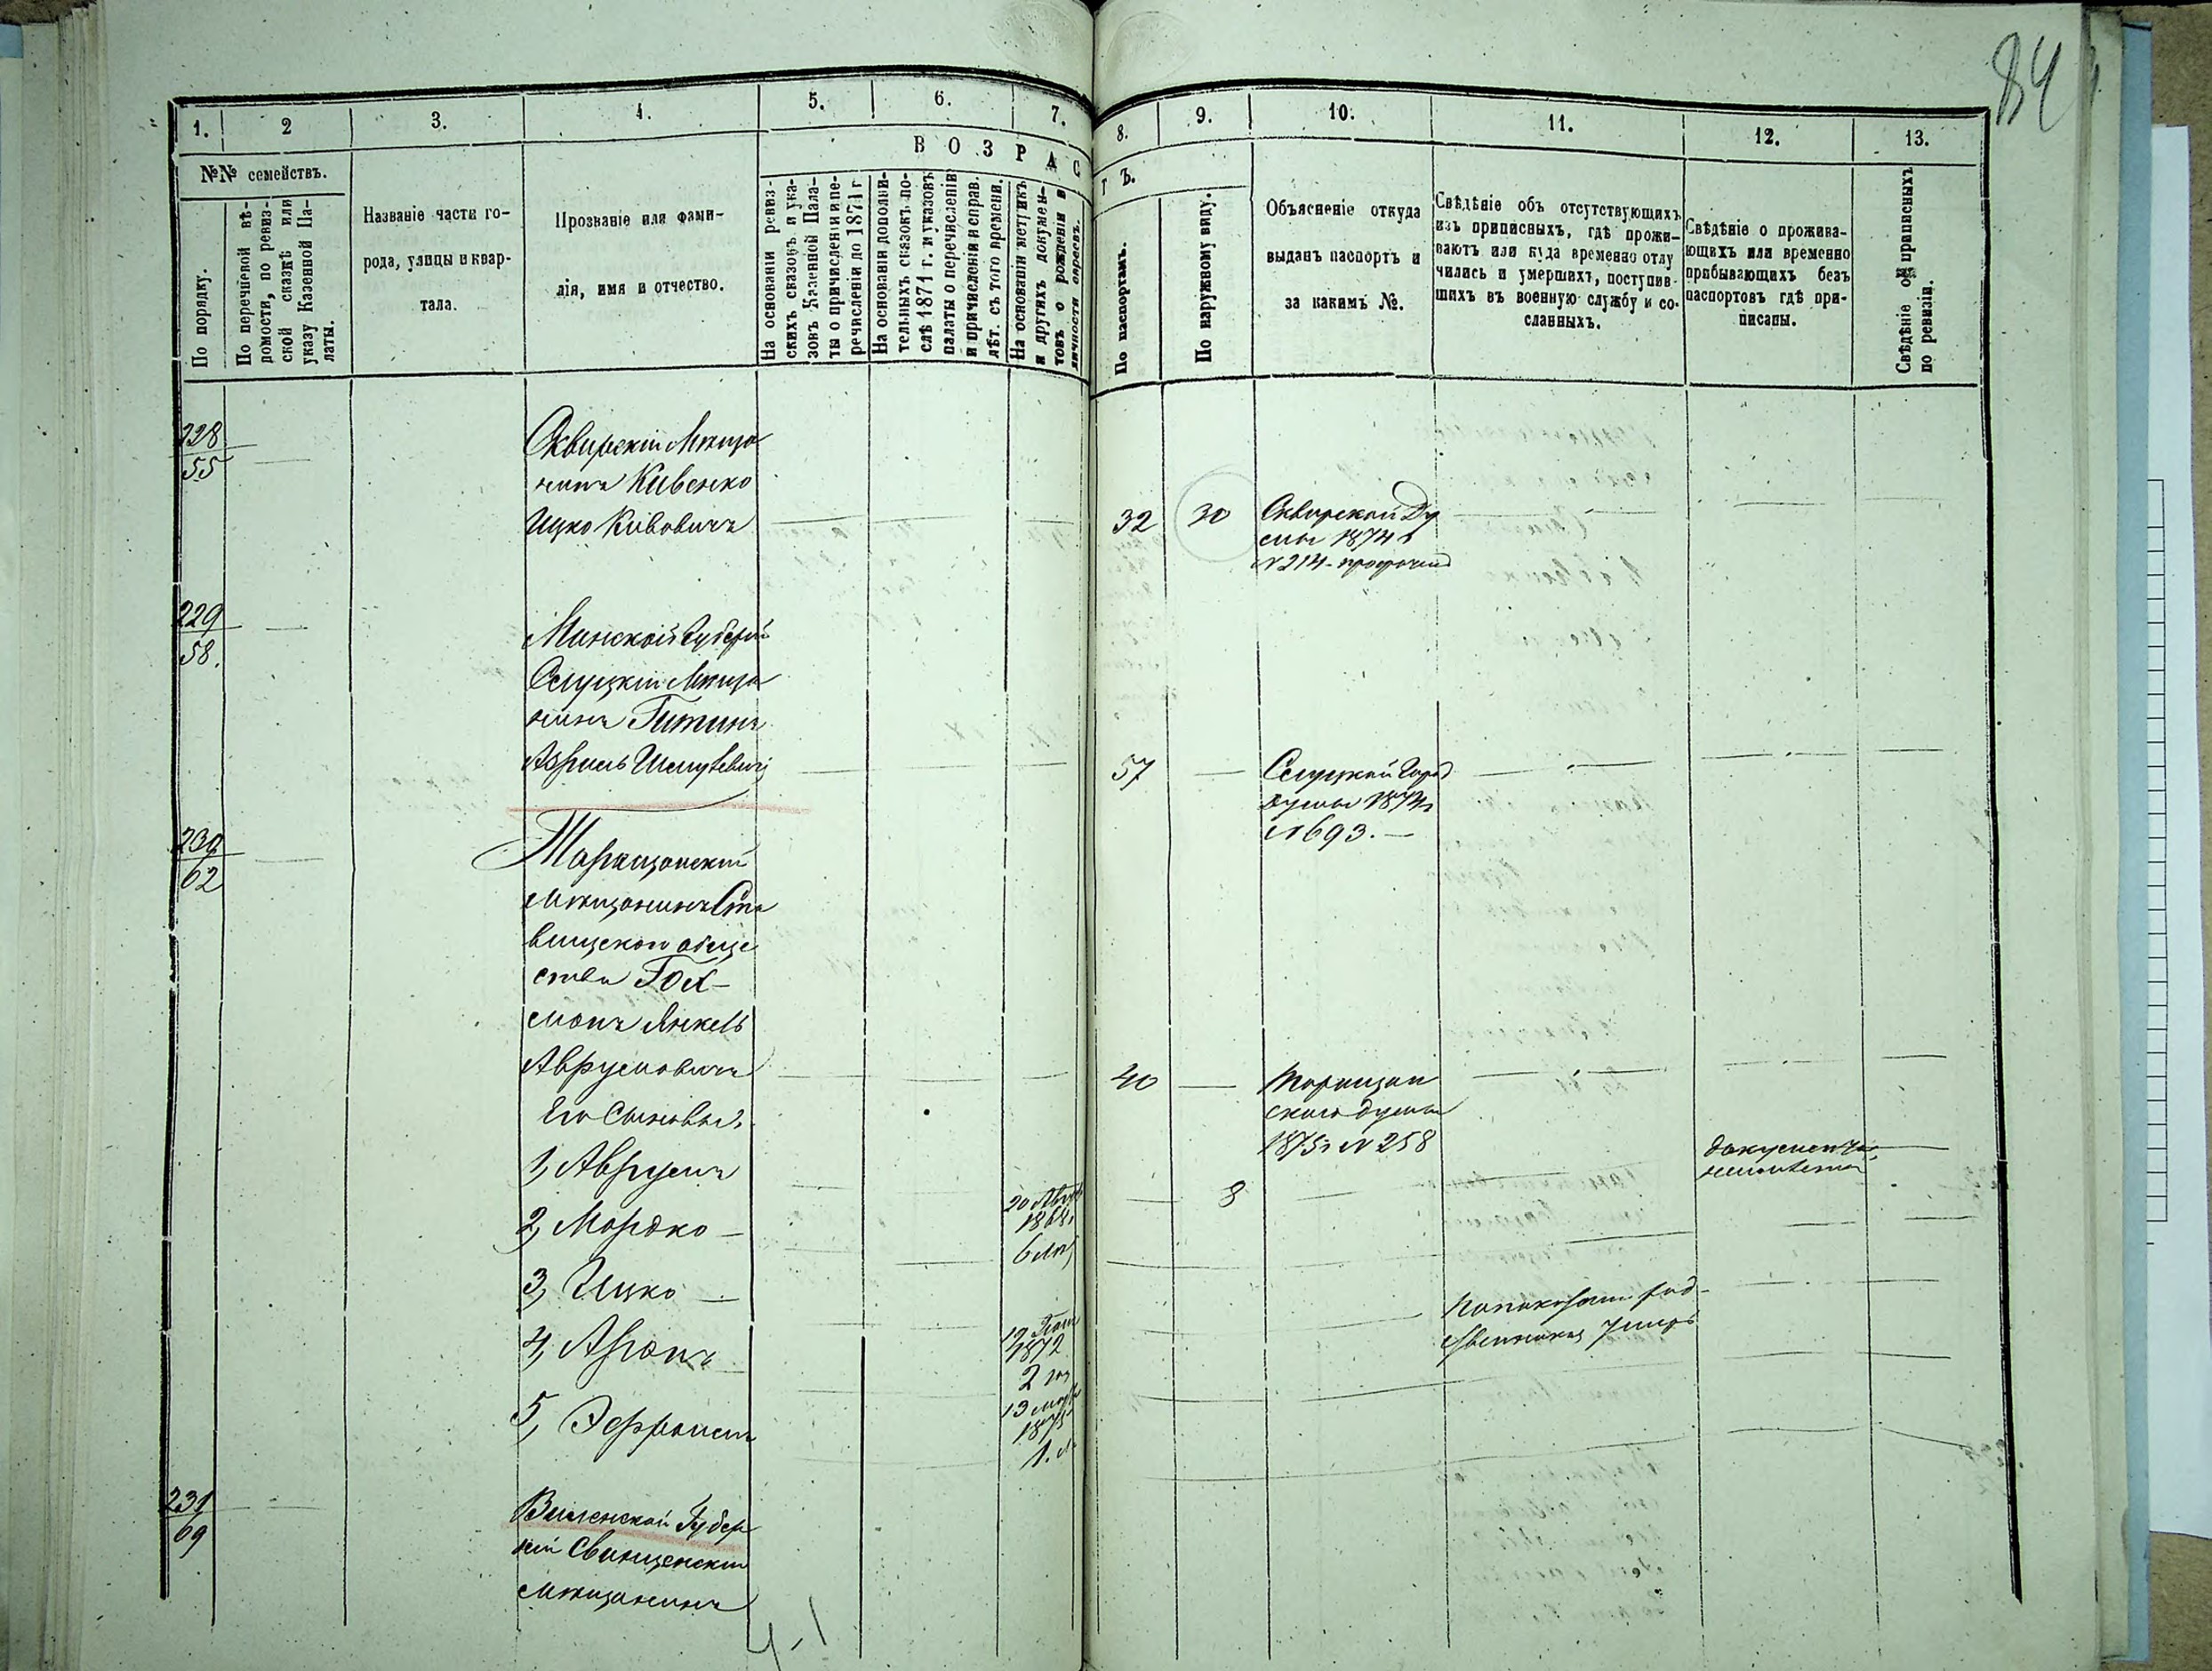 84
1.
2
3.
4.
5.
6.
7.
8.
9.
10.
11.
12.
13.
№№ семействъ.
По порядку.
По перечневой вѣ-
домости, по ревиз-
ской сказкѣ или
указу Казенной Па-
латы.
Названіе части го-
рода, улицы и квар-
тала.
Прозваніе или фами-
лія, имя и отчество.
ВОЗРАС
ТЪ.
На основаніи ревиз-
скихъ сказокъ и ука-
зовъ Казенной Пала-
ты о причисленіи и пе-
речисленіи до 1871 г
На основаніи дополни-
тельныхъ сказокъ по-
слѣ 1871 г. и указовъ
палаты о перечисленіи
и причисленіи и справ.
лѣт. съ того времени.
На основаніи метрикъ
и другихъ докумен-
товъ о рожденіи и
личности евреевъ.
По паспортамъ.
По наружному виду.
Объясненіе откуда
выданъ паспортъ и
за какимъ №.
Свѣдѣніе объ отсутствующихъ
изъ приписныхъ, гдѣ прожи-
ваютъ или куда временно отлу
чились и умершихъ, поступив-
шихъ въ военную службу и со-
сланныхъ.
Свѣдѣніе о прожива-
ющихъ или временно
прибывающихъ безъ
паспортовъ гдѣ при-
писаны.
Свѣдѣніе о приписныхъ
по ревизіи.
228
55
Сквирскій Мѣща
нинъ Кивенко
Ицко Кивовичъ
32
30
Сквирской Ду
мы 1874 г
№ 214 - просроченъ
229
58.
Минской Губерніи
Слуцкій Мѣща
нинъ Гитинъ
57
Слуцкой Город
думы 1874 г
№ 693.
230
62
Таращанскій
мѣщанинъ Ста
вищскаго обще
ства Гох-
манъ Янкель
Аврумовичъ
40
Таращан
ского думы
1875 г № 258
Его Сыновья:
1, Аврумъ
8
документа
неимѣетъ
2, Мордко
20
1868 г
6 лѣт
3, Ицко
4, Аронъ
19
1872
2 год
5, Эфроимъ
13 март
1875
1. м
231
69
Виленской Губер
ніи Свинцянскій
мѣщанинъ
4-1